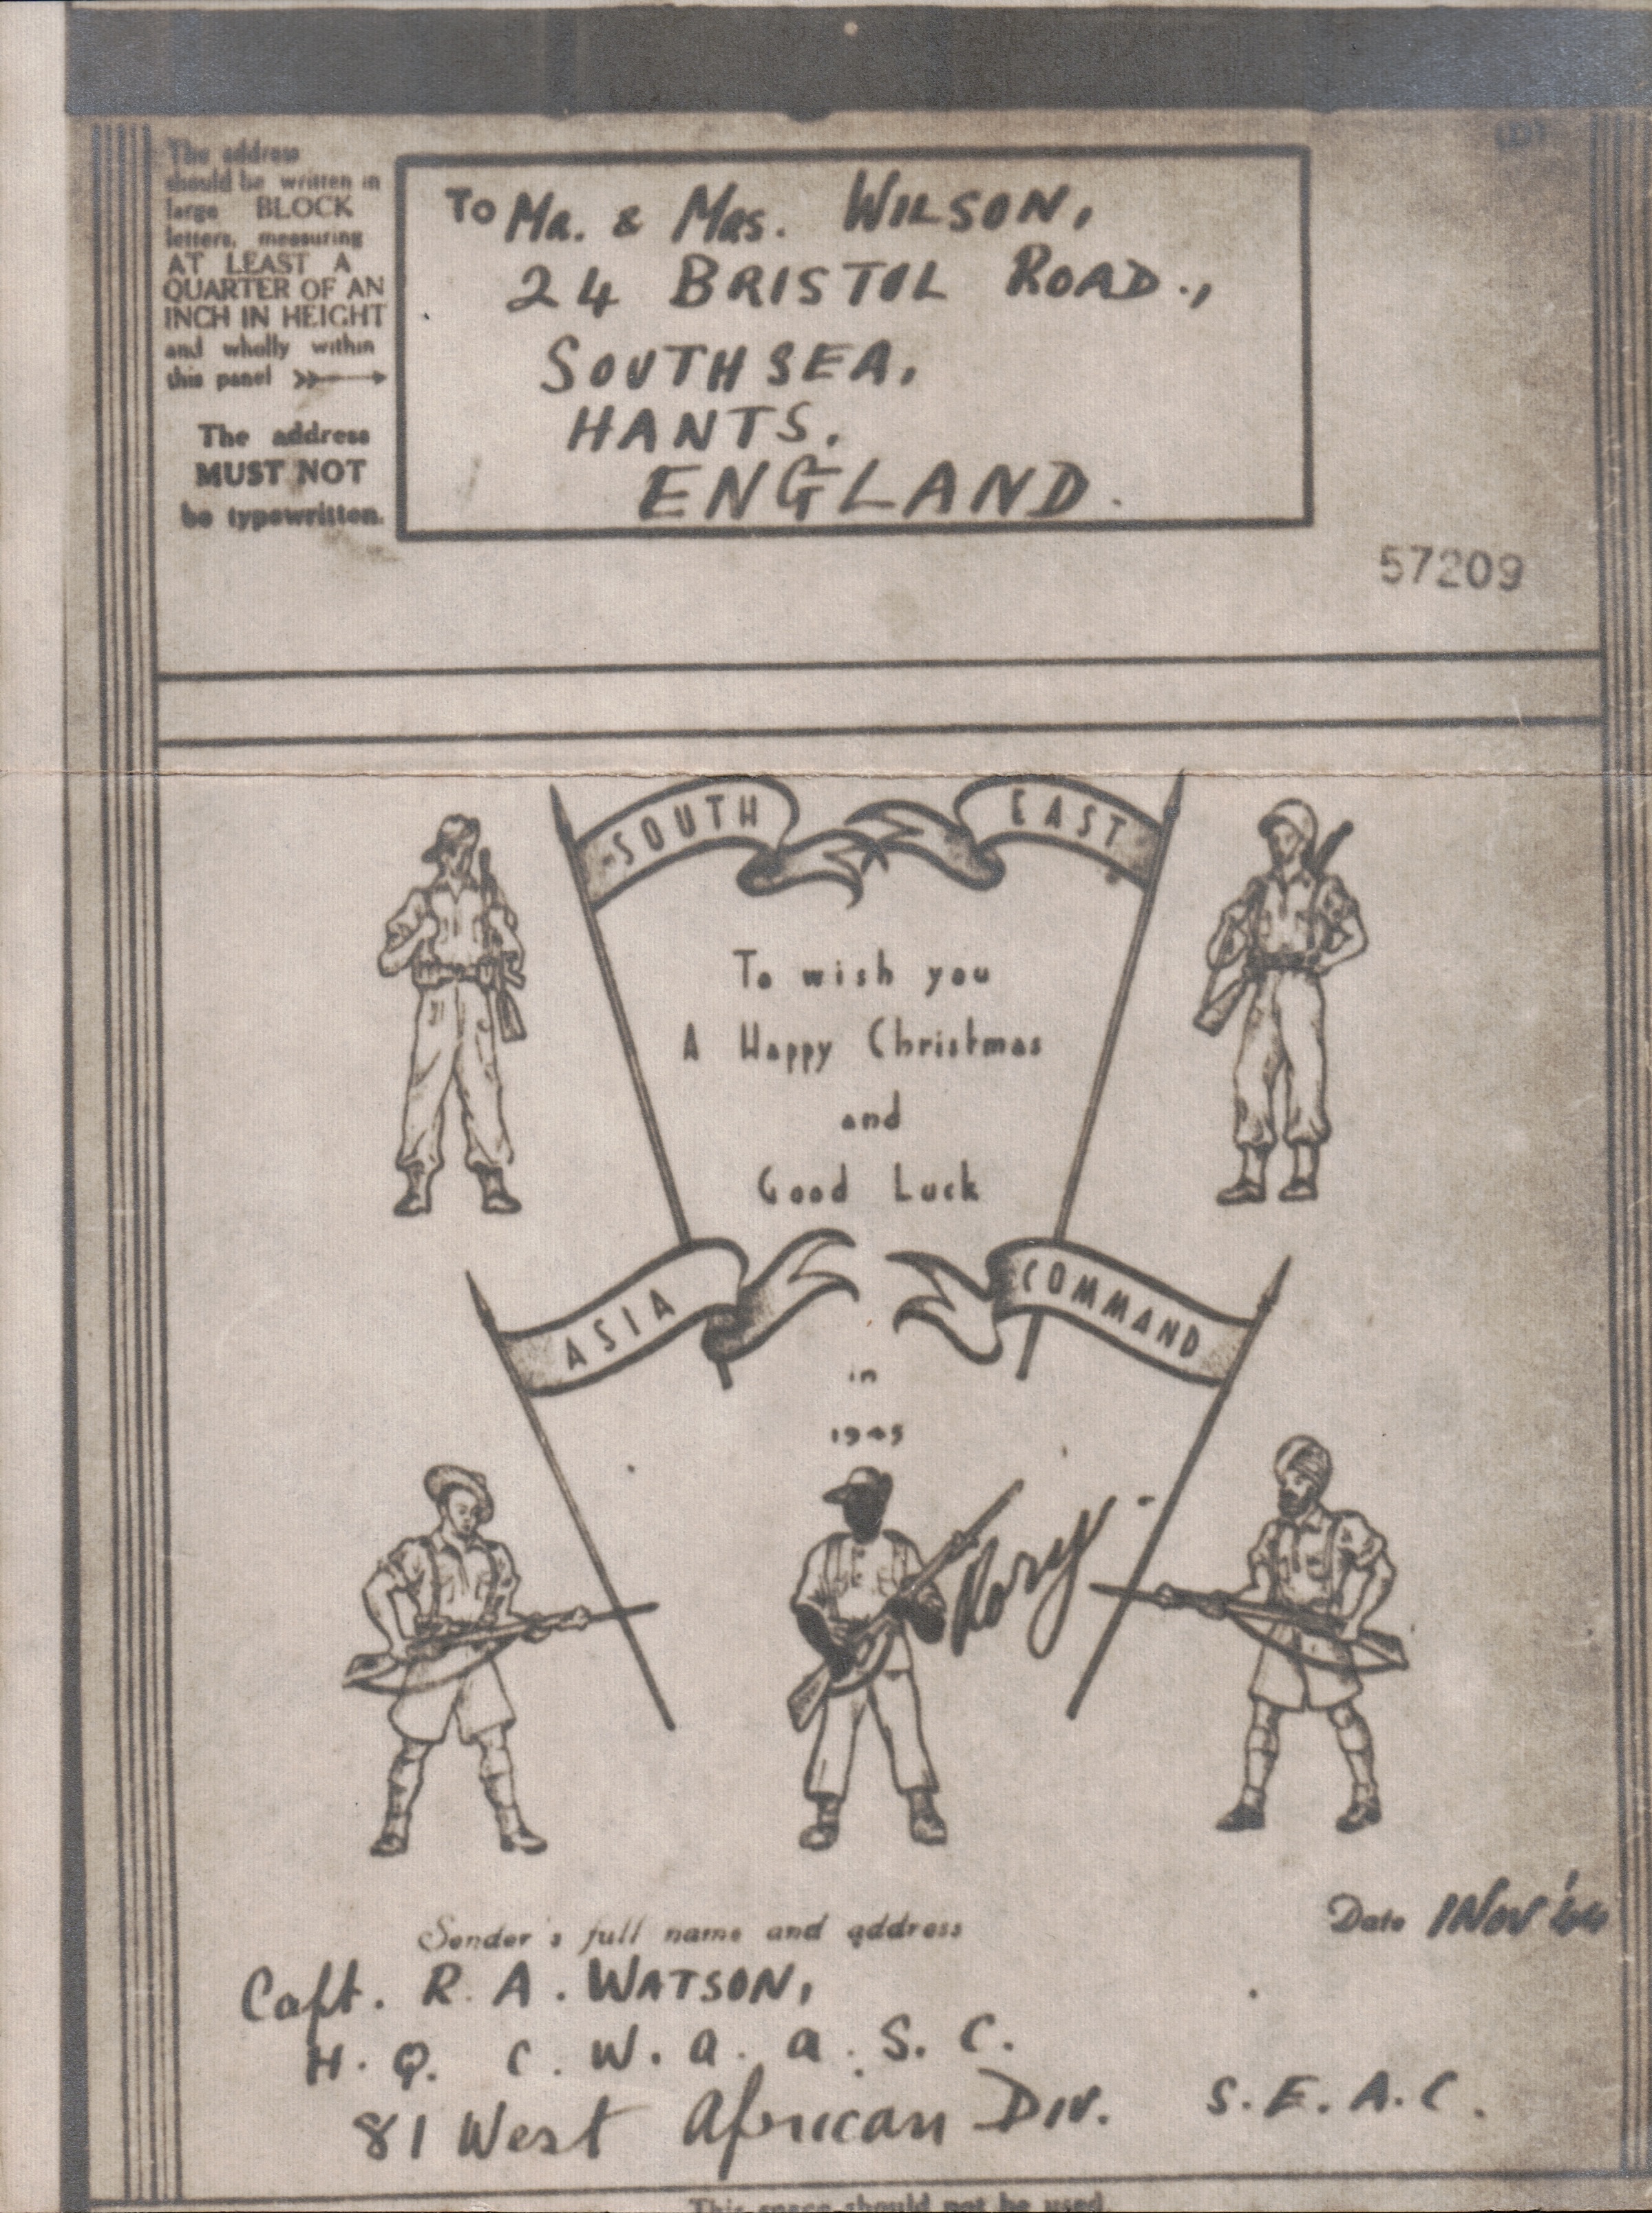 The address
should be written in
large BLOCK
letters, measuring
AT LEAST A
QUARTER OF AN
INCH IN HEIGHT
and wholly within
this panel
The address
MUST NOT
be typewritten.
To Mr. & Mrs. WILSON,
24 BRISTOL ROAD.,
SOUTHSEA,
HANTS.
ENGLAND.
57209
SOUTH EAST
To wish you
A Happy Christmas
and
Good Luck
ASIA COMMAND
in
1945
Rory
Date 1 Nov '44
Sender's full name and address
Capt. R. A. WATSON,
H. Q. C. W. a. a. S. C.
81 West African Div. S. E. A. C.
This space should not be used.